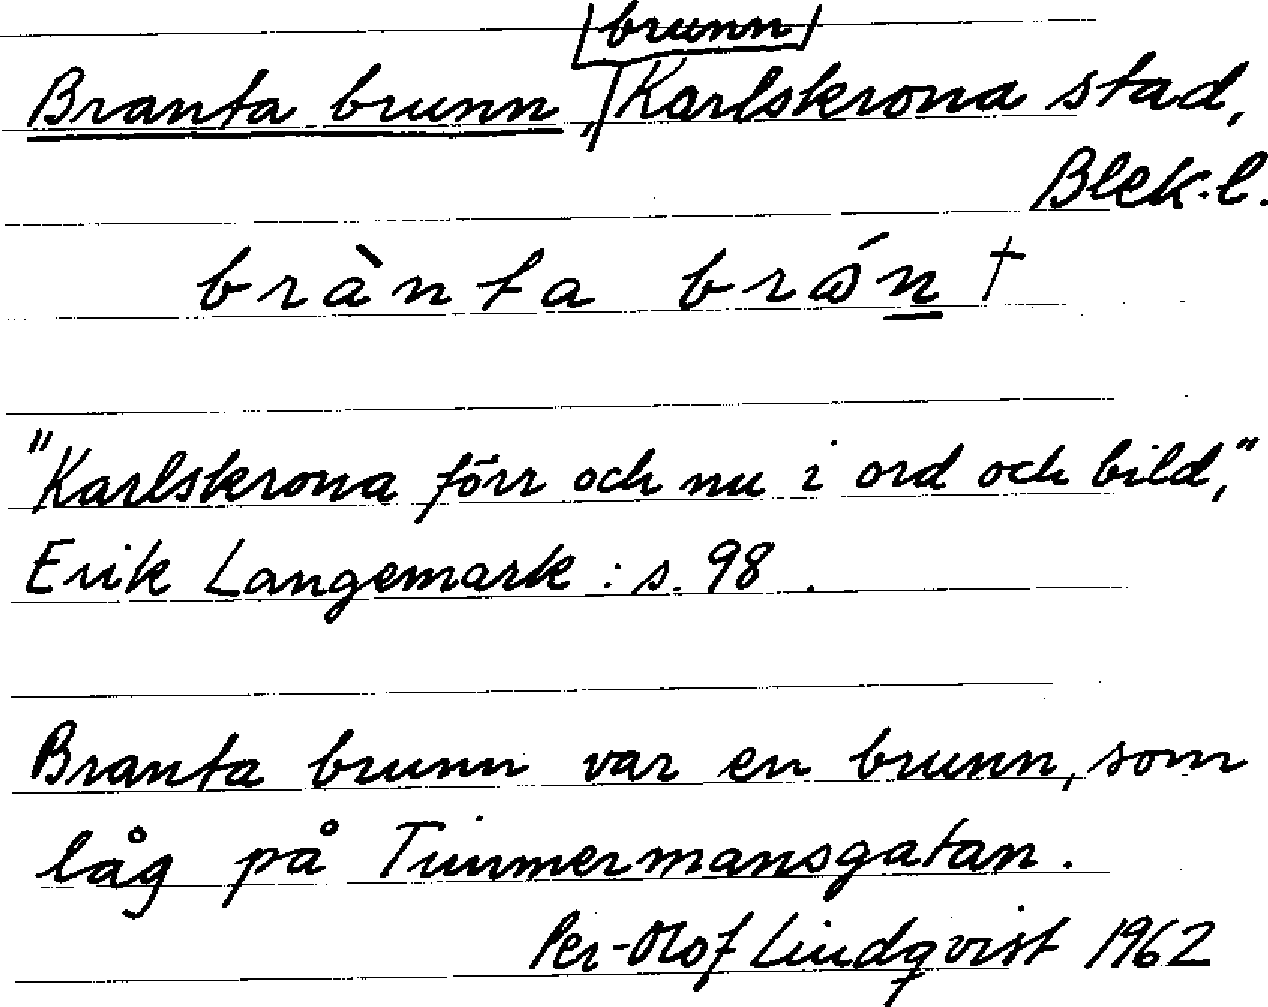 brunn
Branta brunn, Karlskrona stad,
Blek. l.
brànta brɷ́n †
"Karlskrona förr och nu i ord och bild,"
Erik Langemark : s. 98.
Branta brunn var en brunn, som
låg på Timmermansgatan.
Per-Olof Lindqvist 1962